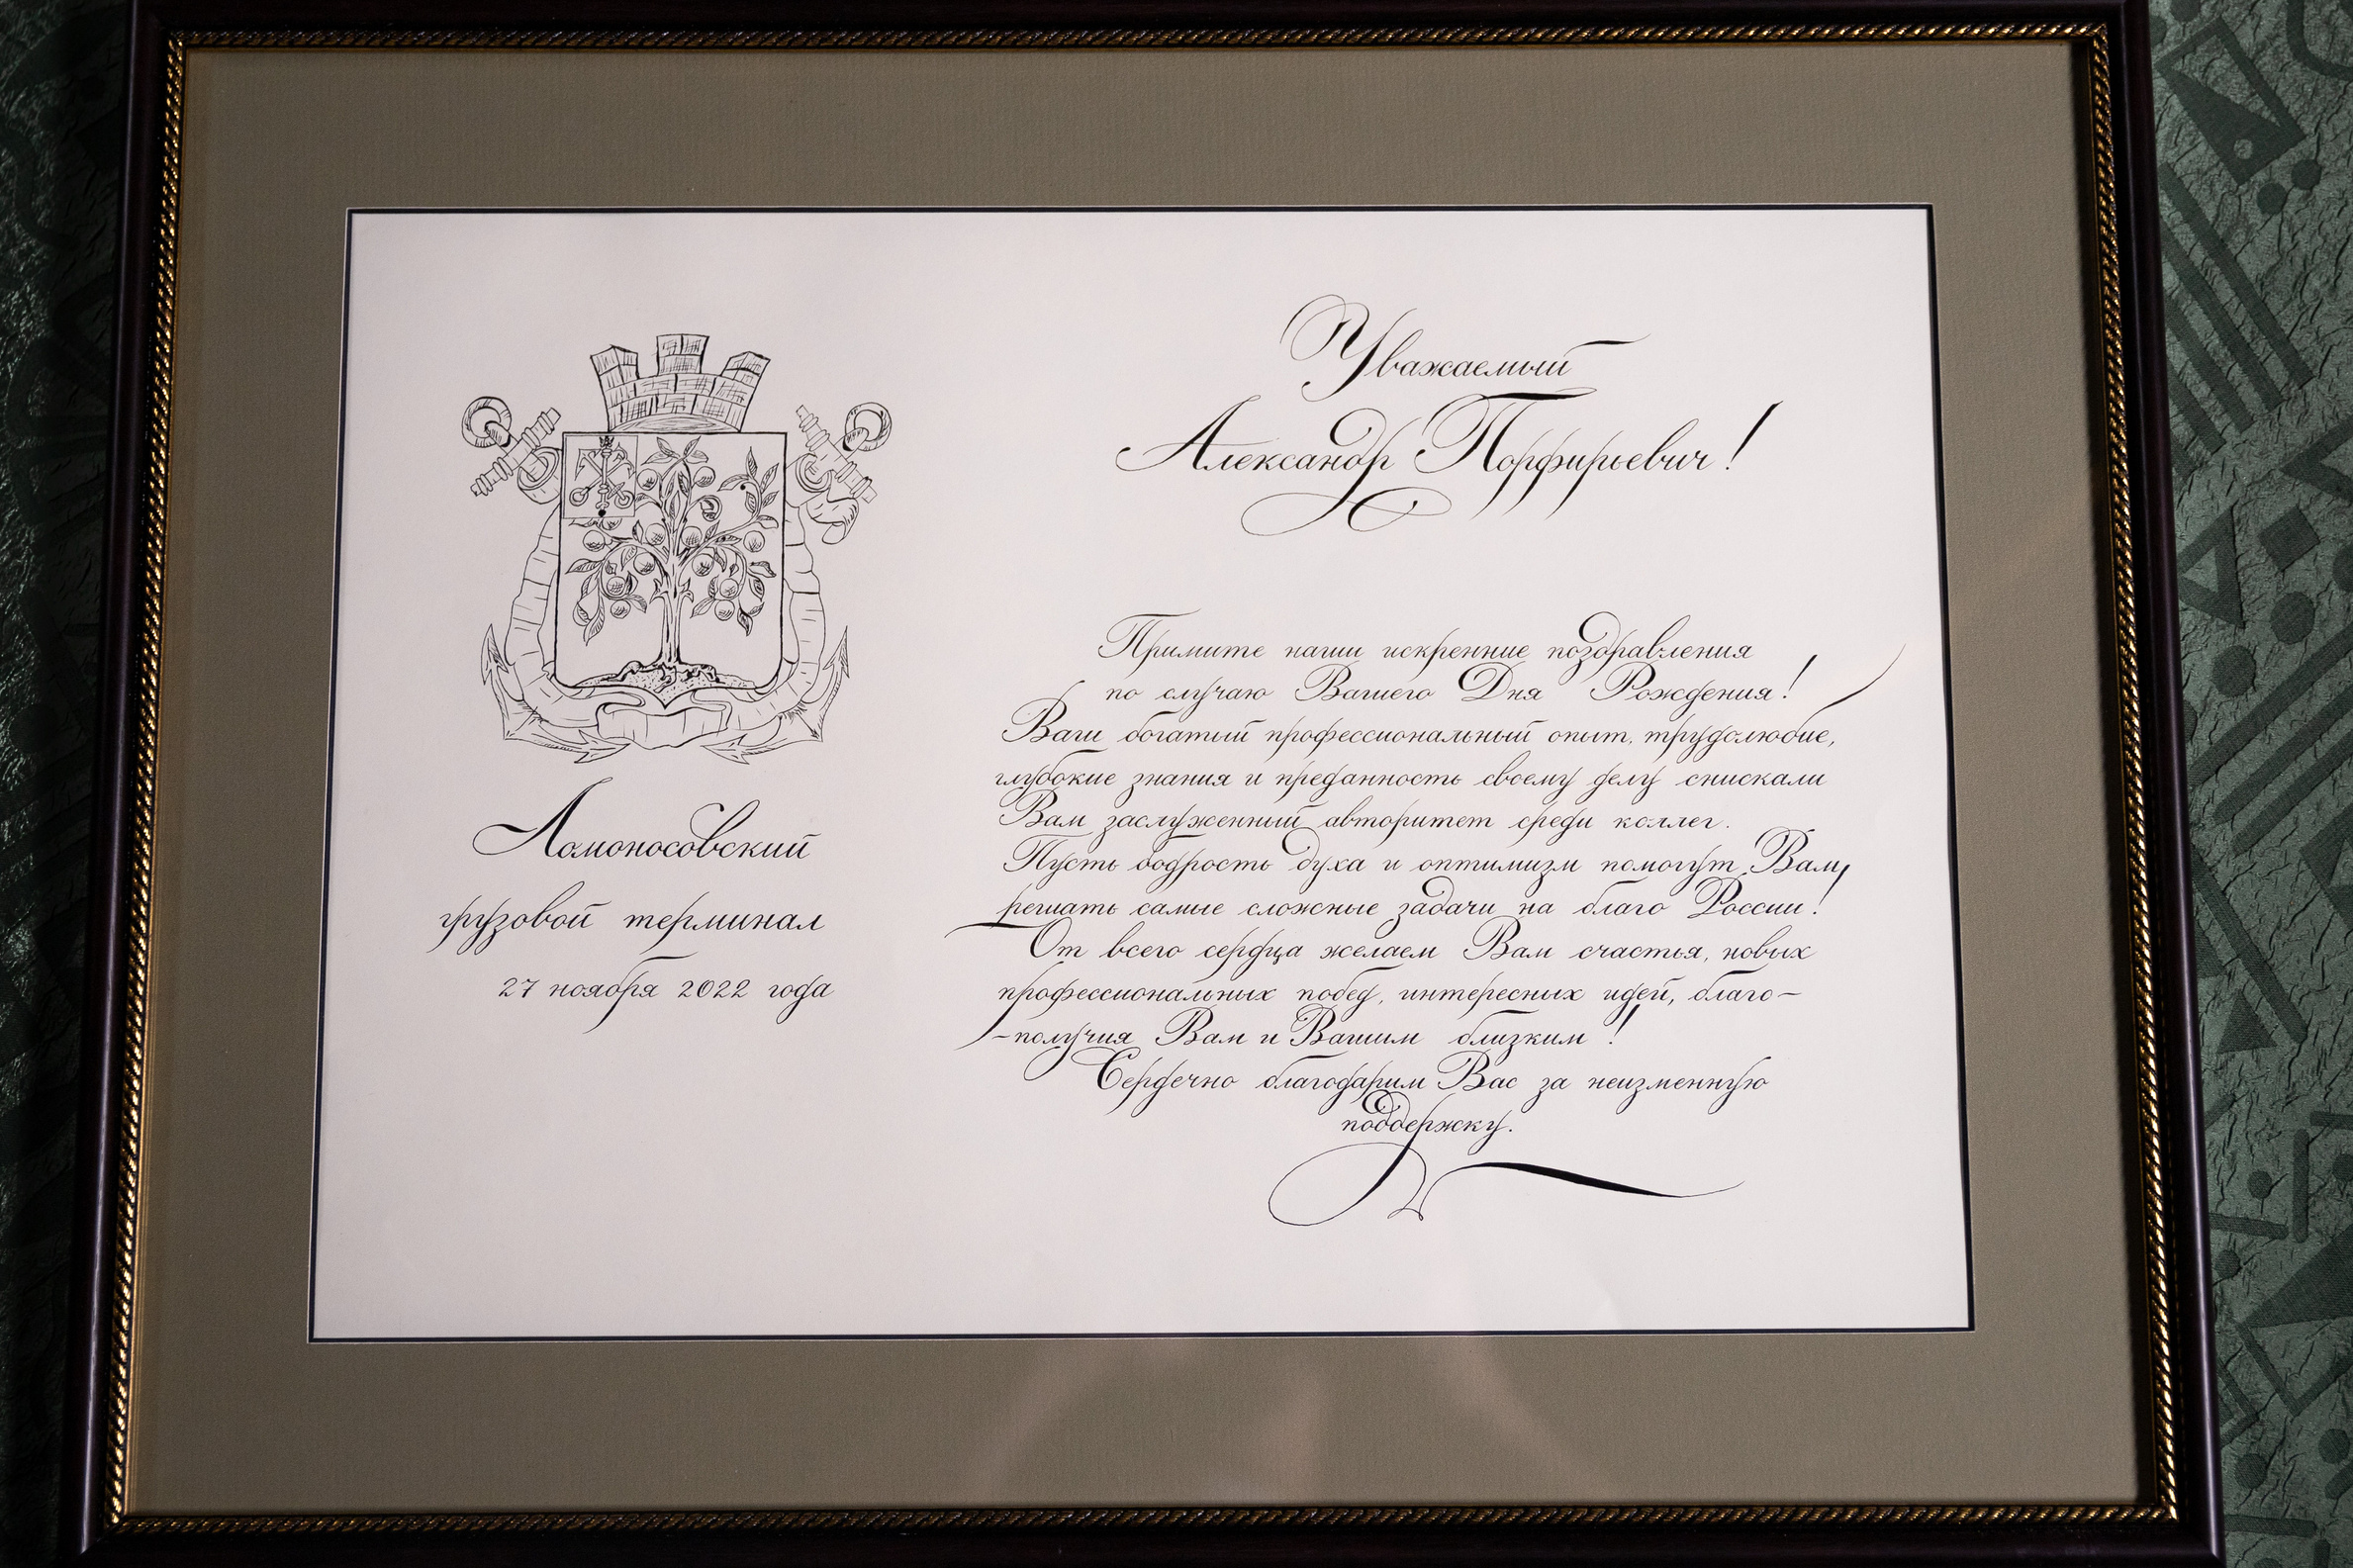 Ломоносовский
грузовой терминал
27 ноября 2022 года
Уважаемый
Александр Порфирьевич!
Примите наши искренние поздравления
по случаю Вашего Дня Рождения!
Ваш богатый профессиональный опыт, трудолюбие,
глубокие знания и преданность своему делу снискали
Вам заслуженный авторитет среди коллег.
Пусть бодрость духа и оптимизм помогут Вам
решать самые сложные задачи на благо России!
От всего сердца желаем Вам счастья, новых
профессиональных побед, интересных идей, благо-
-получия Вам и Вашим близким!
Сердечно благодарим Вас за неизменную
поддержку.